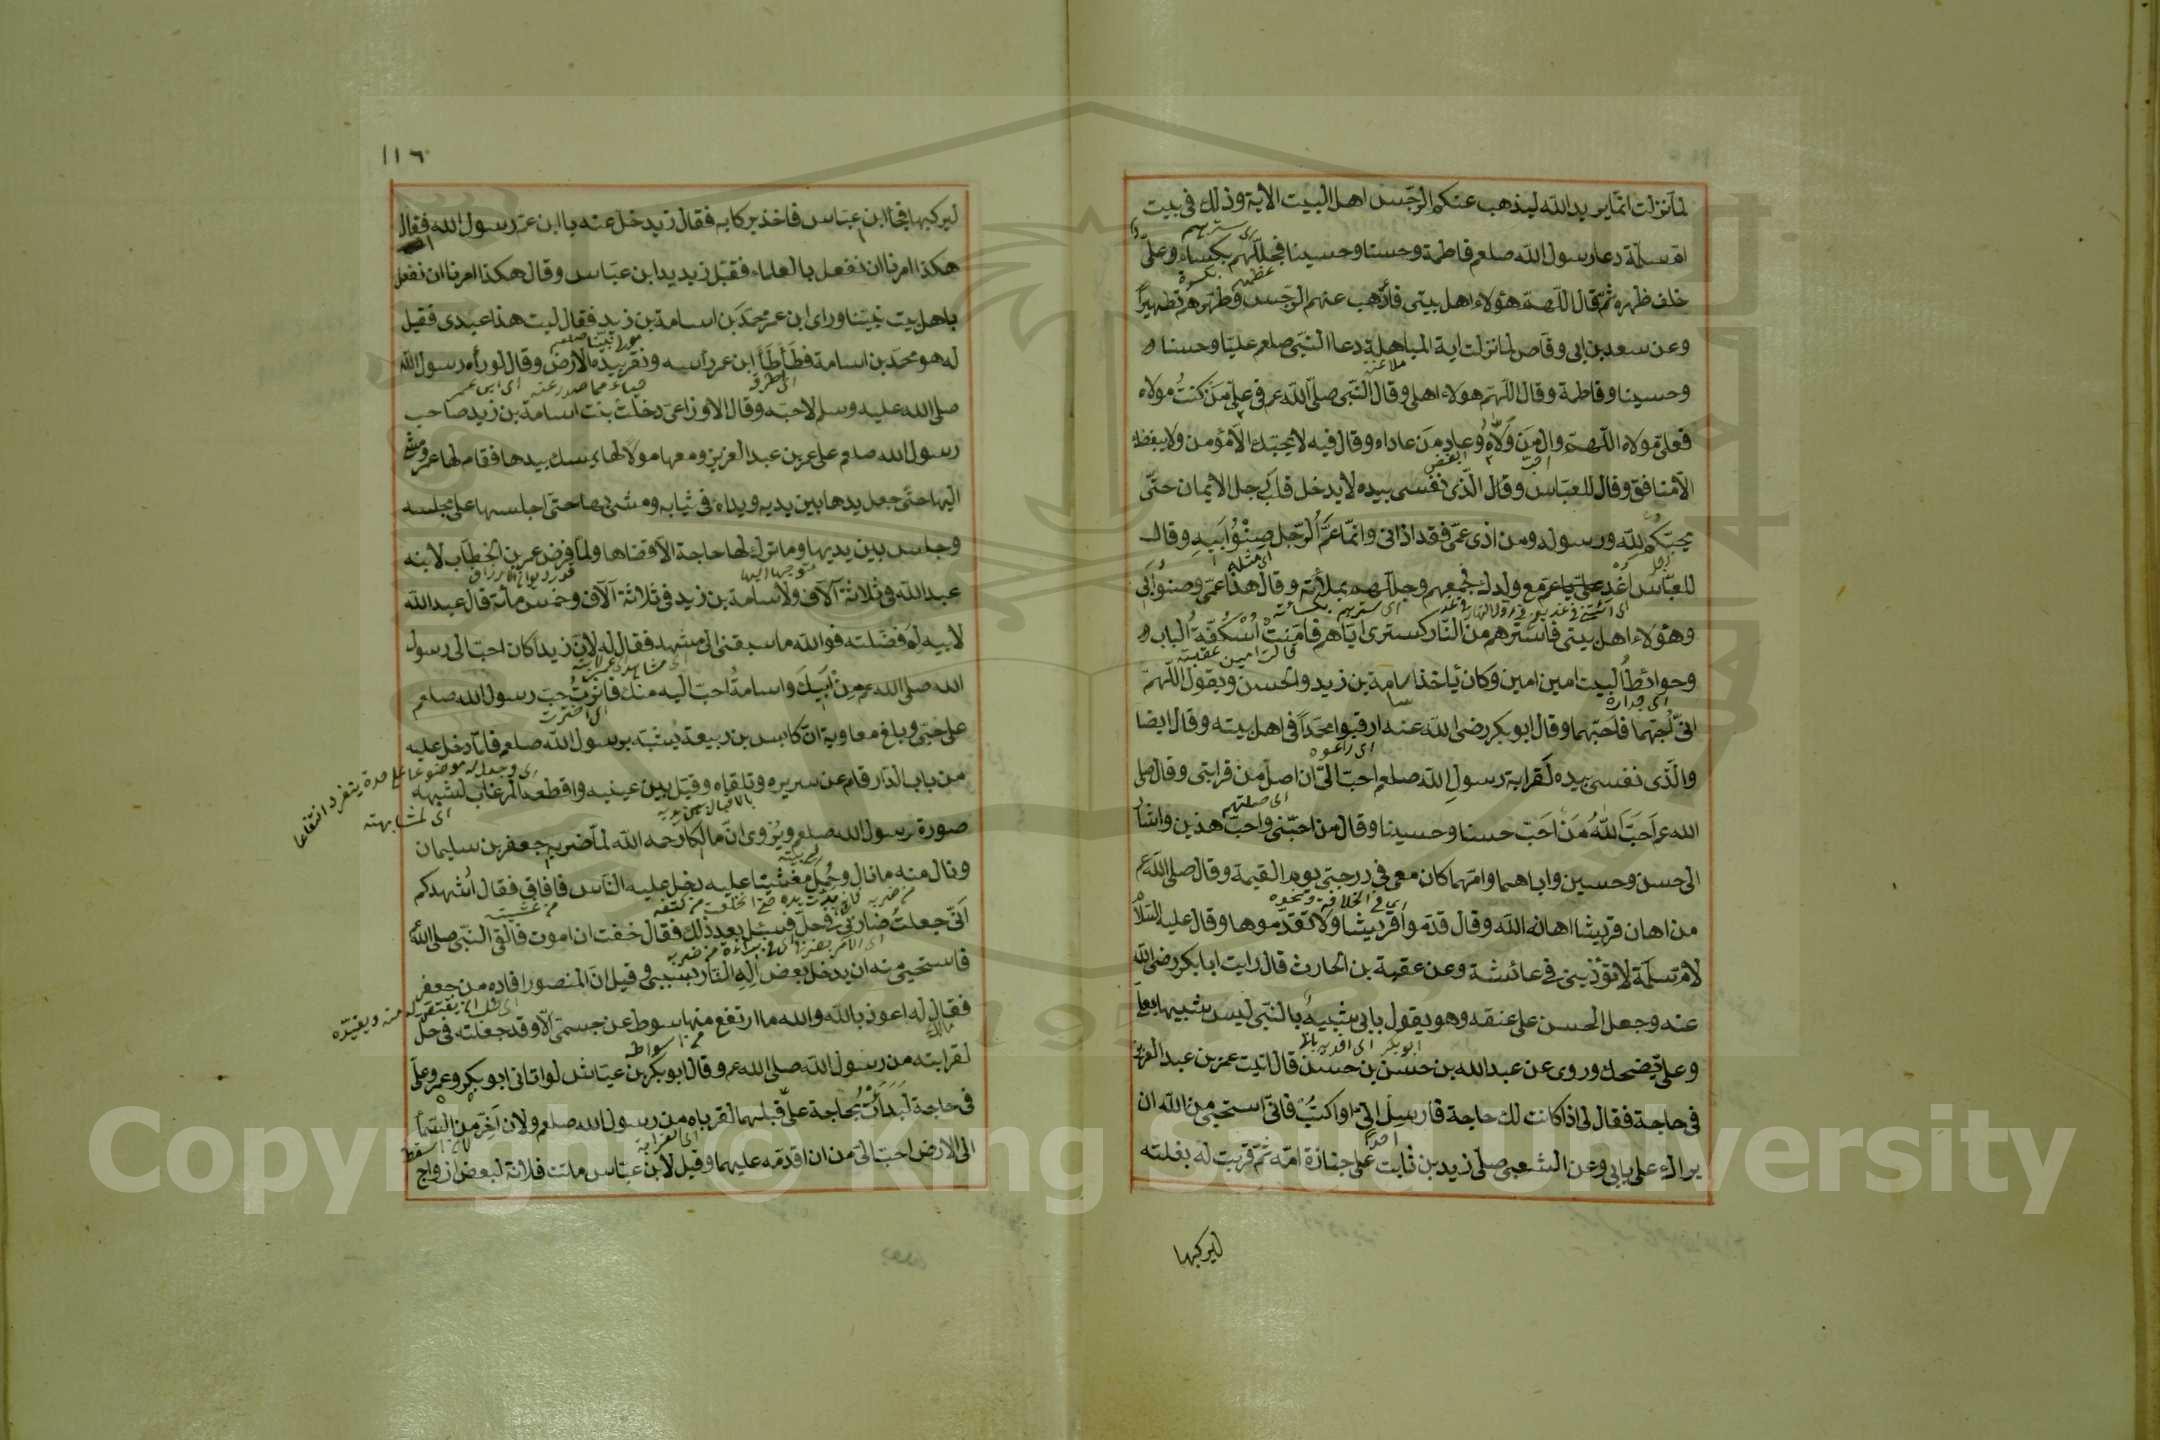 لما نزلت انما يريد الله ليذهب عنكم الرجس اهل البيت الاية وذلك فى بيت
ام سلمة دعا رسول الله صلعم فاطمة وحسنا وحسينا فجللهم بكساء وعلى
خلف ظهره ثم قال اللهم هؤلاء اهل بيتى فأذهب عنهم الرجس وطهرهم تطهيرا
وعن سعد بن ابى وقاص لما نزلت اية المباهلة دعا النبى صلعم عليا وحسنا و
وحسينا وفاطمة وقال اللهم هولاء اهلى وقال النبى صلى الله عم فى على من كنت مولاه
فعلى مولاه اللهم وال من ولاه وعاد من عاداه وقال فيه لا يحبك الا مؤمن ولا يبغضك
الا منافق وقال للعباس وقال الذى نفسى بيده لا يدخل قلب رجل الايمان حتى
يحبكم لله ورسوله ومن اذى عمى فقد اذانى وانما عم الرجل صنو ابيه وقال
للعباس اغد على ياعم مع ولدك فجمعهم وجللهم بملائته وقال هذا عمى وصنو ابى
وهؤلاء اهل بيتى فاسترهم من النار كسترى اياهم فامنت اسكفة الباب و
وحوائط البيت امين امين وكان يأخذ اسامة بن زيد والحسن ويقول اللهم
انى احبهما فاحبهما وقال ابو بكر رضى الله عنه ارقبوا محمدا فى اهل بيته وقال ايضا
والذى نفسى بيده لقرابة رسول الله صلعم احب الى ان اصل من قرابتى وقال صلى
الله عم احب الله من احب حسنا وحسينا وقال من احبنى واحب هذين واشار
الى حسن وحسين واباهما وامهما كان معى فى درجتى يوم القيمة وقال صلى الله عم
من اهان قريشا اهانه الله وقال قدموا قريشا ولا تقدموها وقال عليه السلام
لام سلمة لا تؤذينى فى عائشة وعن عقبة بن الحارث قال رايت ابا بكر رضى الله
عنه وجعل الحسن على عنقه وهو يقول بابى شبيه بالنبى ليس شبيها بعلى
وعلى يضحك وروى عن عبد الله بن حسن بن حسن قال اتيت عمر بن عبد العزيز
فى حاجة فقال لى اذا كانت لك حاجة فارسل الى او اكتب فانى استحيى من الله ان
يراك على بابى وعن الشعبى صلى زيد بن ثابت على جنازة امه ثم قربت له بغلته
ليركبها
١١٦
ليركبها فجا ابن عباس فاخذ بركابه فقال زيد خل عنه يا ابن عم رسول الله فقال
هكذا امرنا ان نفعل بالعلماء فقبل زيد يد ابن عباس وقال هكذا امرنا ان نفعل
باهل بيت نبينا وراى ابن عمر محمد بن اسامة بن زيد فقال ليت هذا عبدى فقيل
له هو محمد بن اسامة فطأطأ ابن عمر رأسه ونقر بيده الارض وقال لو رأه رسول الله
صلى الله عليه وسلم لاحبه وقال الاوزاعى دخلت بنت اسامة بن زيد صاحب
رسول الله صلعم على عمر بن عبد العزيز ومعها مولا لها يمسك بيدها فقام لها عمر ومشى
اليها حتى جعل يدها بين يديه ويداه فى ثيابه ومشى بها حتى اجلسها على مجلسه
وجلس بين يديها وما ترك لها حاجة الا قضاها ولما فرض عمر بن الخطاب لابنه
عبد الله فى ثلاثة آلاف ولاسامة بن زيد فى ثلاثة آلاف وخمس مائة قال عبد الله
لابيه لم فضلته فو الله ما سبقنى الى مشهد فقال له لان زيدا كان احب الى رسول
الله صلى الله عم من ابيك واسامة احب اليه منك فاثرت حب رسول الله صلعم
على حبى وبلغ معاوية ان كابس بن ربيعة يشبه برسول الله صلعم فلما دخل عليه
من باب الدار قام عن سريره وتلقاه وقبل بين عينيه واقطعه المرغاب لشبهه
صورة رسول الله صلعم ويروى ان مالكا رحمه الله لما ضربه جعفر بن سليمان
ونال منه ما نال وحمل مغشيا عليه دخل عليه الناس فافاق فقال اشهدكم
انى جعلت ضاربى فى حل فسئل بعد ذلك فقال خفت ان اموت فالقى النبى صلى الله
فاستحيى منه ان يدخل بعض اله النار بسببى وقيل ان المنصور اقاده من جعفر
فقال له اعوذ بالله والله ما ارتفع منها سوط عن جسمى الا وقد جعلته فى حل
لقرابته من رسول الله صلى الله عم وقال ابو بكر بن عياش لو اتانى ابو بكر وعمر وعلى
فى حاجة لبدأت بحاجة على قبلهما لقرباه من رسول الله صلعم ولان اخر من السماء
الى الارض احب الى من ان اقدمه عليهما وقيل لابن عباس ماتت فلانة لبعض ازواج
Copyright © King Saud University